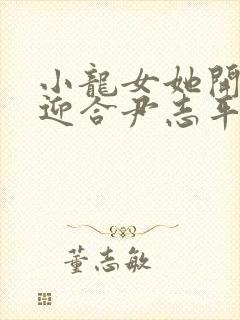 小龍女她開
迎合尹志平
董志敏